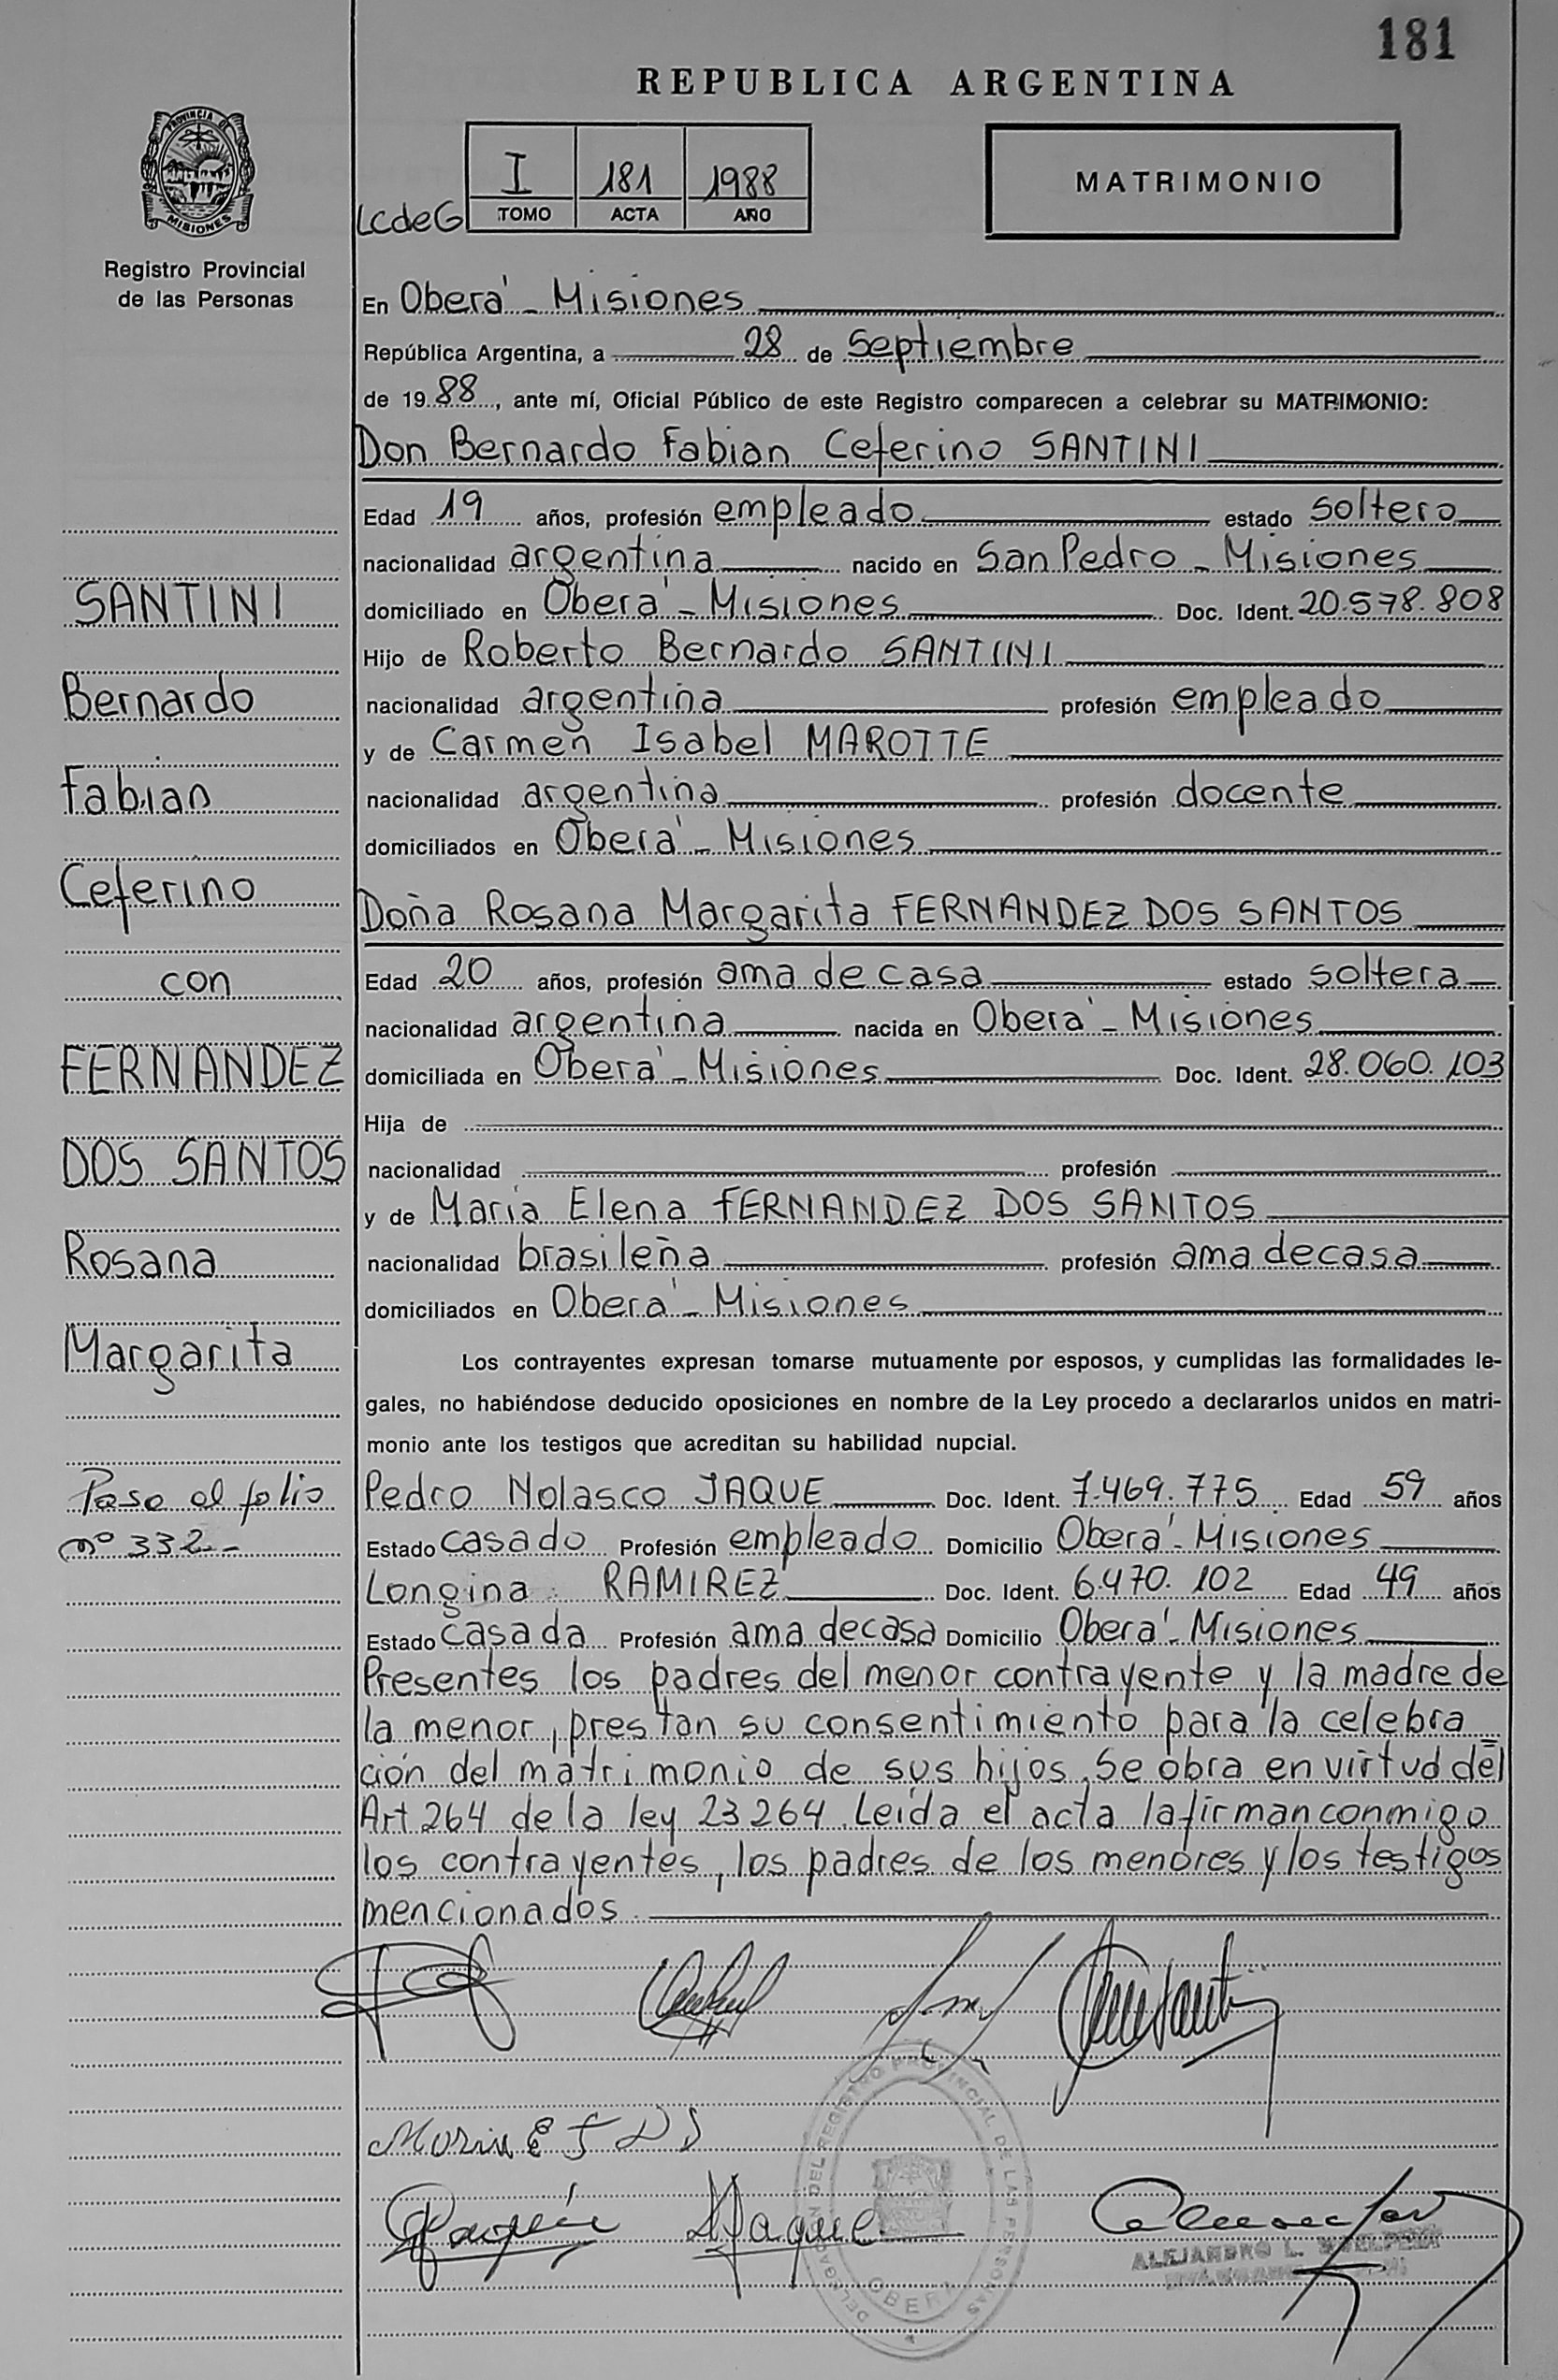 181
REPUBLICA ARGENTINA
PROVINCIA DE
MISIONES
Registro Provincial
de las Personas
LcdeG
I 181 1988
TOMO ACTA AÑO
MATRIMONIO
En Oberá - Misiones
República Argentina, a 28 de Septiembre
de 1988, ante mí, Oficial Público de este Registro comparecen a celebrar su MATRIMONIO:
Don Bernardo Fabian Ceferino SANTINI
Edad 19 años, profesión empleado estado soltero
nacionalidad argentina nacido en San Pedro - Misiones
domiciliado en Oberá - Misiones Doc. Ident. 20.578.808
Hijo de Roberto Bernardo SANTINI
nacionalidad argentina profesión empleado
y de Carmen Isabel MAROTTE
nacionalidad argentina profesión docente
domiciliados en Oberá - Misiones
Doña Rosana Margarita FERNANDEZ DOS SANTOS
Edad 20 años, profesión ama de casa estado soltera
nacionalidad argentina nacida en Oberá - Misiones
domiciliada en Oberá - Misiones Doc. Ident. 28.060.103
Hija de
nacionalidad profesión
y de María Elena FERNANDEZ DOS SANTOS
nacionalidad brasileña profesión ama de casa
domiciliados en Oberá - Misiones
Los contrayentes expresan tomarse mutuamente por esposos, y cumplidas las formalidades le-
gales, no habiéndose deducido oposiciones en nombre de la Ley procedo a declararlos unidos en matri-
monio ante los testigos que acreditan su habilidad nupcial.
Pedro Nolasco JAQUE Doc. Ident. 7.469.775 Edad 59 años
Estado casado Profesión empleado Domicilio Oberá - Misiones
Longina RAMIREZ Doc. Ident. 6.470.102 Edad 49 años
Estado casada Profesión ama de casa Domicilio Oberá - Misiones
Presentes los padres del menor contrayente y la madre de
la menor, prestan su consentimiento para la celebra
ción del matrimonio de sus hijos. Se obra en virtud del
Art 264 de la ley 23264. Leída el acta la firman conmigo
los contrayentes, los padres de los menores y los testigos
mencionados
SANTINI
Bernardo
Fabian
Ceferino
con
FERNANDEZ
DOS SANTOS
Rosana
Margarita
Pase al folio
nº 332 -
Maria E F D S
Jaque
DELEGACION DEL REGISTRO PROVINCIAL DE LAS PERSONAS
OBERA
ALEJANDRO L.